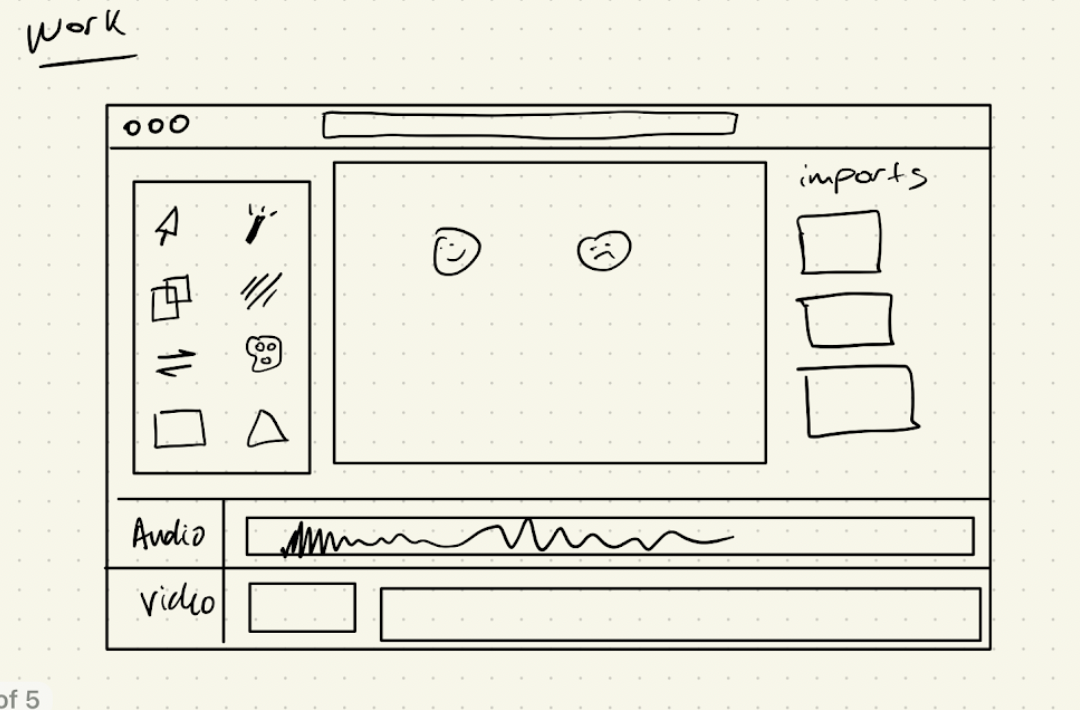 Work
imports
Audio
Video
of 5